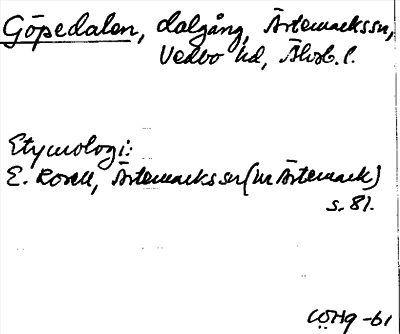 Göpedalen, dalgång, Ärtemarks sn,
Vedbo hd, Älvsb. l.
Etymologi:
E. Rosell, Ärtemarks sn (ur Ärtemark)
s. 81.
WHg -61